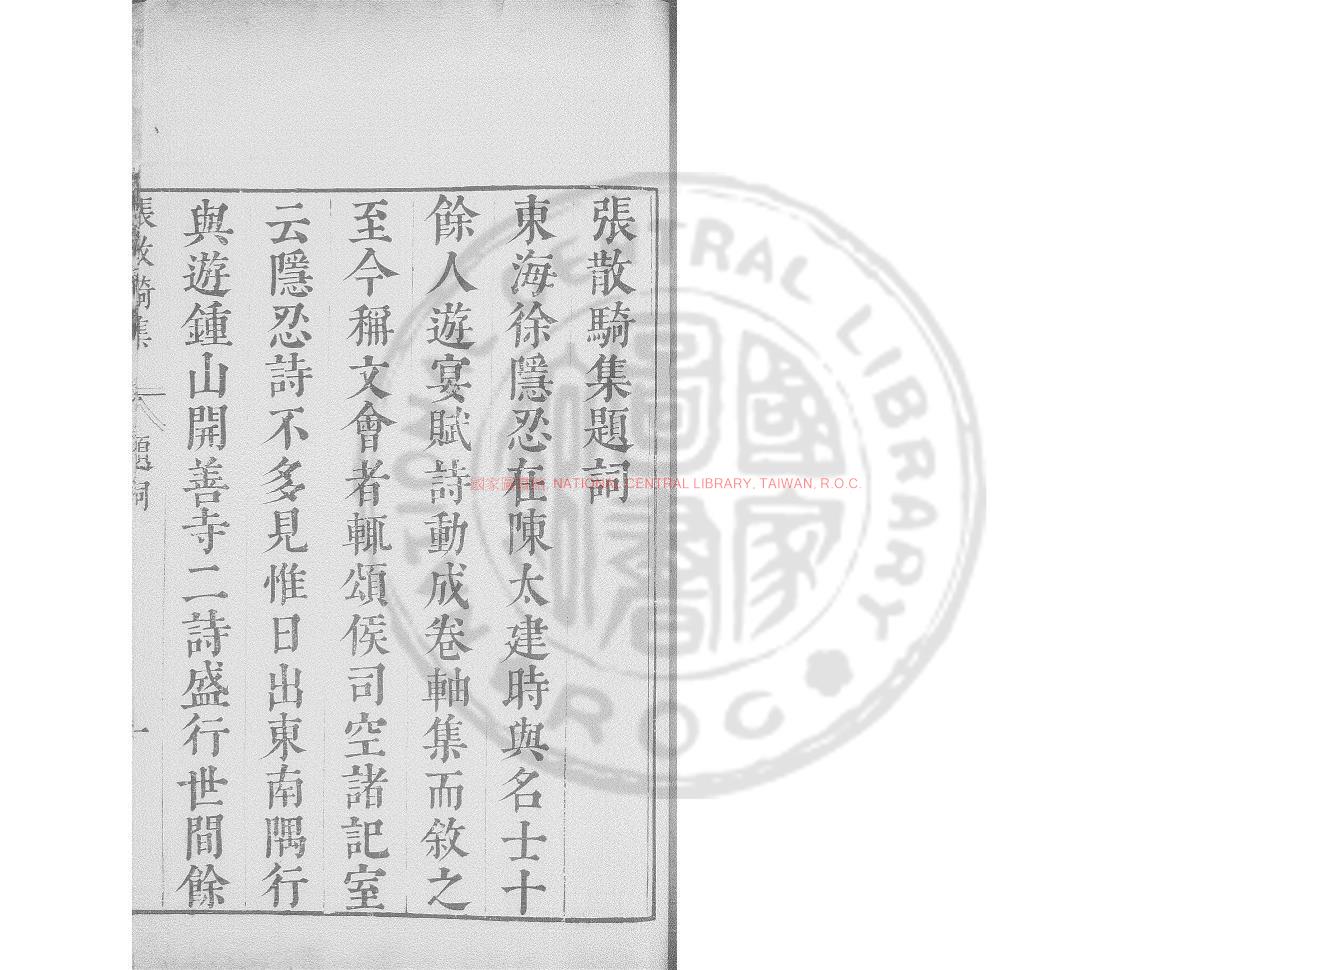 張散騎集題詞
東海徐隱忍在陳太建時與名士十
餘人遊宴賦詩動成卷軸集而敘之
至今稱文會者輒頌侯司空諸記室
云隱忍詩不多見惟日出東南隅行
與遊鍾山開善寺二詩盛行世間餘
張散騎集
題詞
一
國家圖書館 NATIONAL CENTRAL LIBRARY, TAIWAN, R.O.C.
NATIONAL CENTRAL LIBRARY
R.O.C
國家圖書館